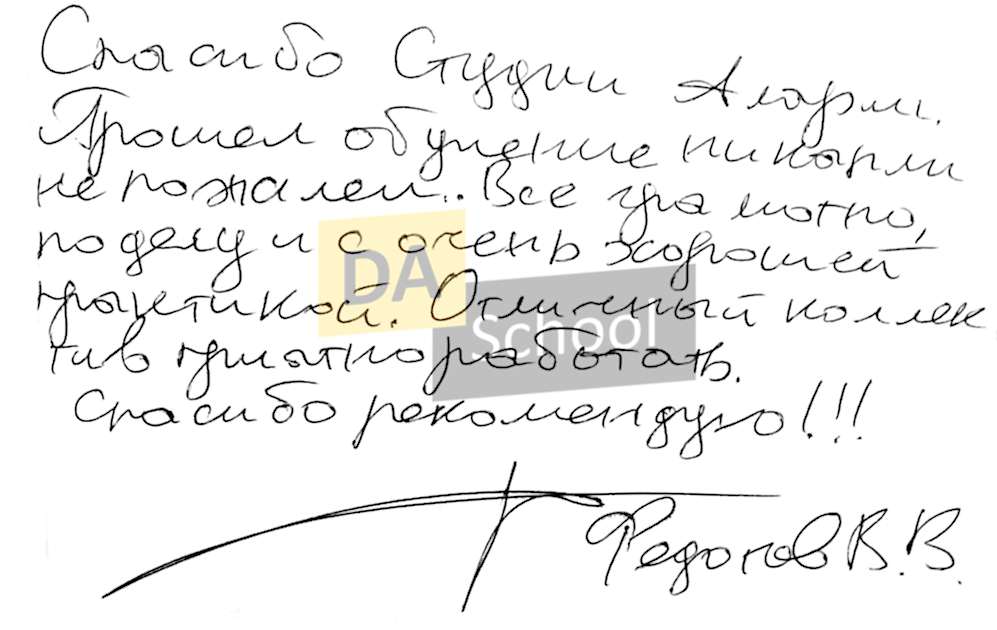 Спасибо Студии Аларм.
Прошел обучение ни капли
не пожалел.. Все грамотно,
по делу и с очень хорошей
практикой. Отличный коллек
тив приятно работать.
Спасибо рекомендую!!!
Федотов В. В.
DA
School